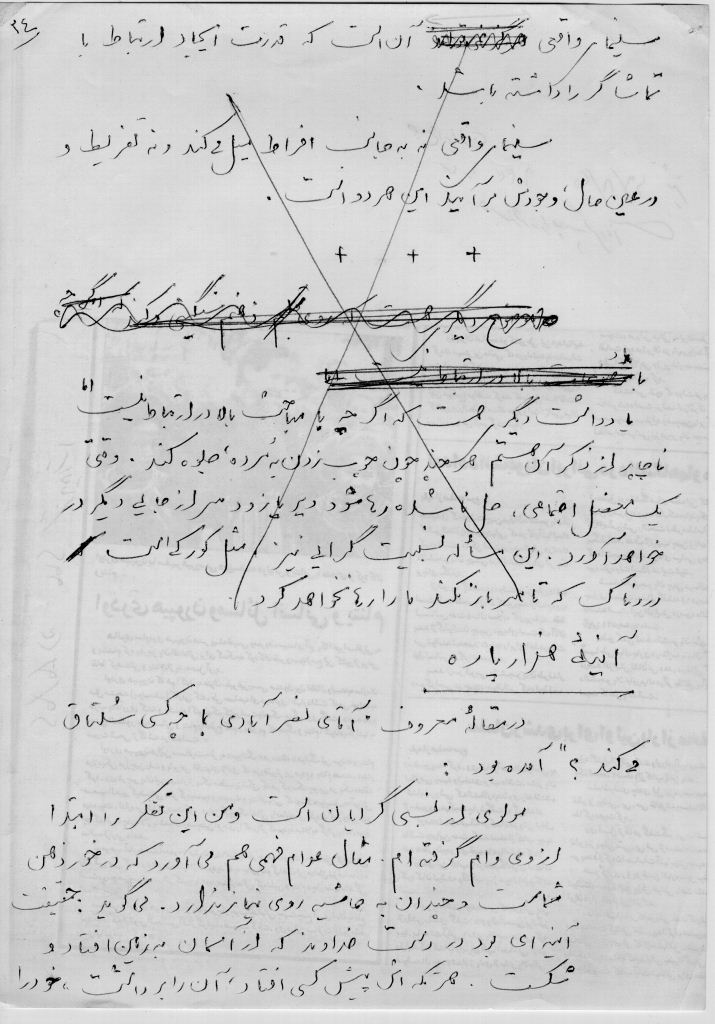 ۳۴
سینمای واقعی آن است که قدرت ایجاد ارتباط با
تماشاگر را داشته باشد.
سینمای واقعی نه به جانب افراط میل می‌کند و نه تفریط و
در عین حال، وجودش برآیند این هر دو است.
+ + +
یادداشت دیگری هست که اگر چه با مباحث بالا در ارتباط نیست اما
ناچار از ذکر آن هستم هر چند چون چوب زدن به مُرده، جلوه کند. وقتی
یک معضل اجتماعی، حل ناشده رها شود دیر یا زود سر از جایی دیگر در
خواهد آورد. این مسأله نسبیت گرایی نیز، مثل کورکی است
دردناک که تا سر باز نکند ما را رها نخواهد کرد.
آینهٔ هزار پاره
در مقالهٔ معروف "آقای نصرآبادی با چه کسی شلتاق
می‌کند؟" آمده بود:
مولوی از نسبی گرایان است و من این تفکر را ابتدا
از وی وام گرفته‌ام. مثال عوام فهمی هم می‌آورد که در خور ذهن
شماست و چندان به حاشیه روی نیاز ندارد. می‌گوید: حقیقت
آینه‌ای بود در دست خداوند که از آسمان به زمین افتاد و
شکست. هر تکه‌اش پیش کسی افتاد، آن را برداشت، خود را